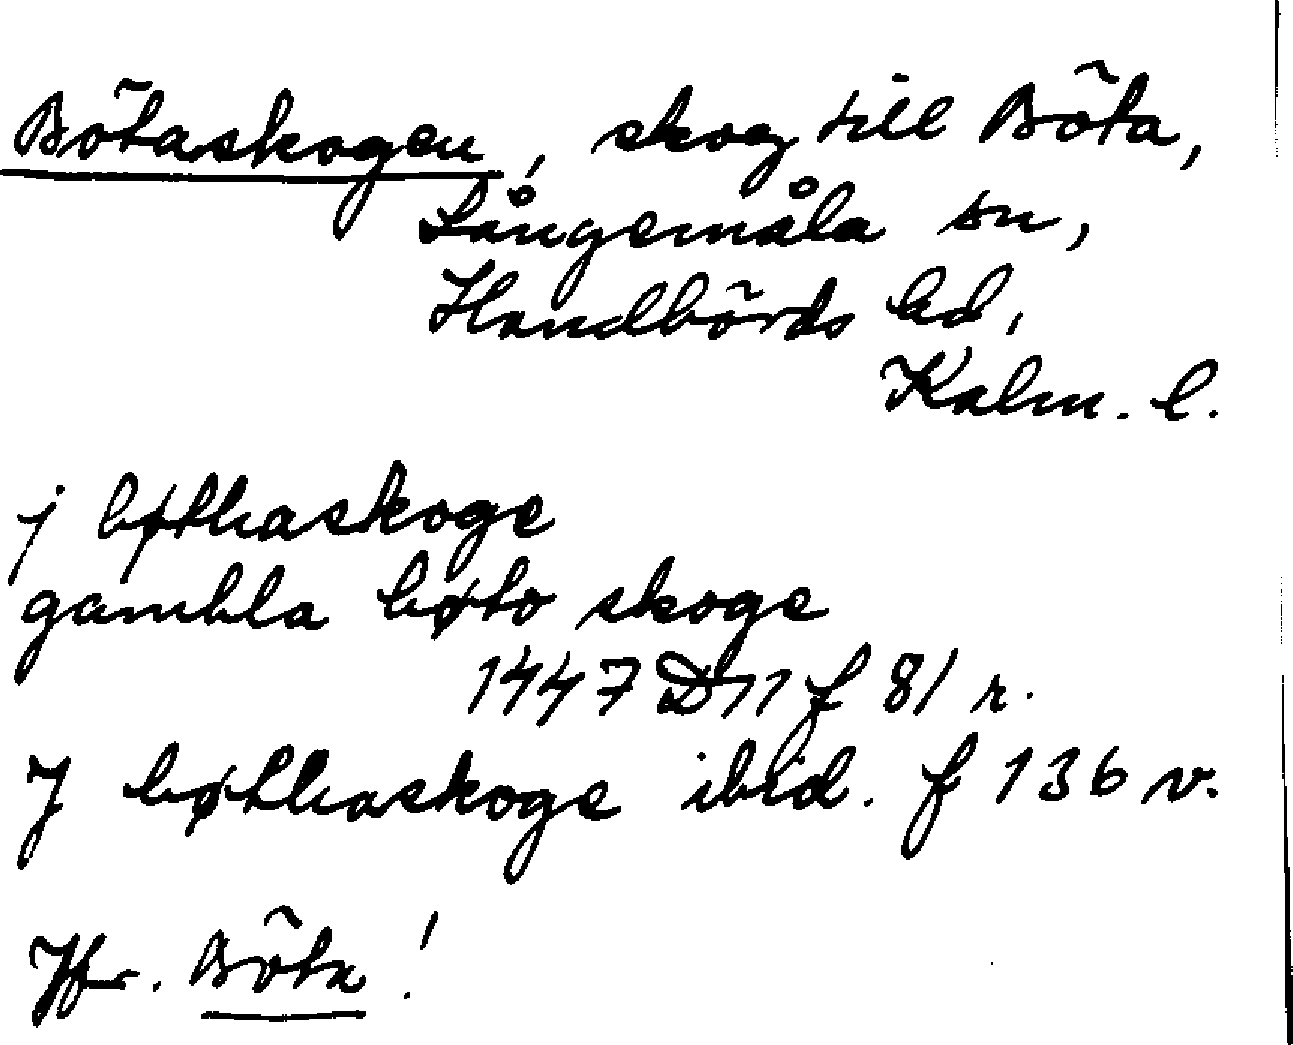 Bötaskogen, skog till Böta,
Långemåla sn,
Handbörds hd,
Kalm. l.
j bøthaskoge
gambla bøto skoge
1447 D 11 f 81 r.
J bøthaskoge ibid. f 136 v.
Jfr. Böta!